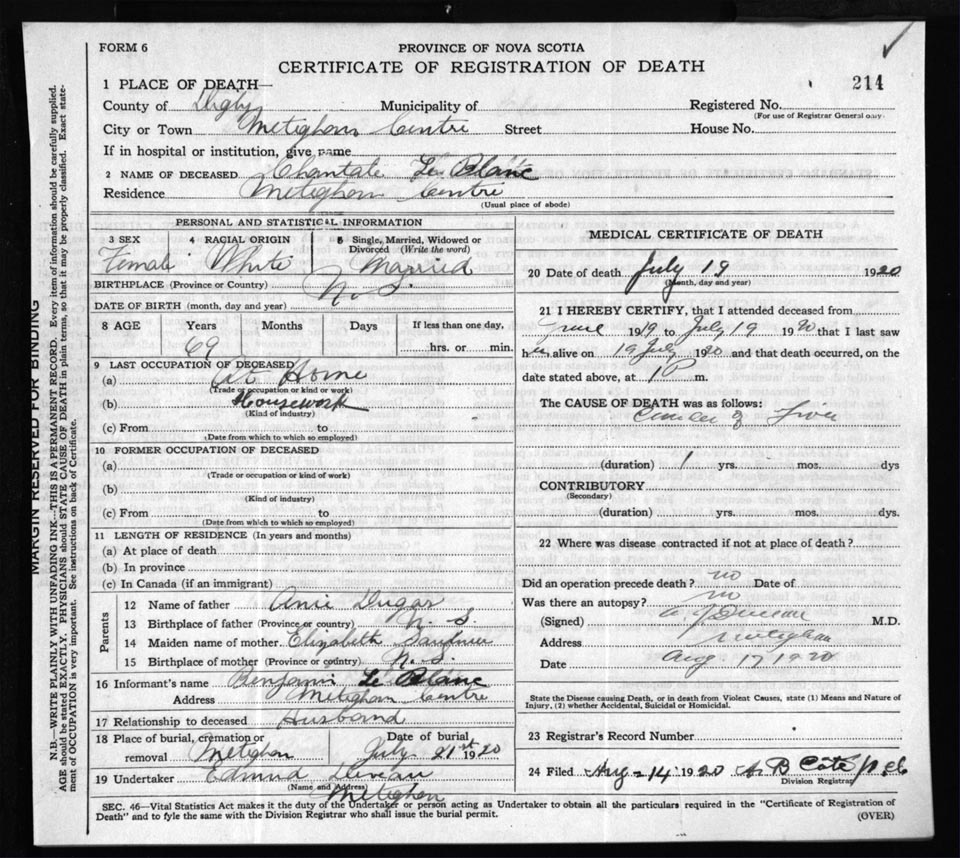 FORM 6
PROVINCE OF NOVA SCOTIA
CERTIFICATE OF REGISTRATION OF DEATH
214
1 PLACE OF DEATH—
County of Digby Municipality of Registered No.
(For use of Registrar General only.)
City or Town Meteghan Centre Street House No.
If in hospital or institution, give name
2 NAME OF DECEASED Chantale Le Blanc
Residence Meteghan Centre
(Usual place of abode)
PERSONAL AND STATISTICAL INFORMATION
3 SEX 4 RACIAL ORIGIN 5 Single, Married, Widowed or Divorced (Write the word)
Female White Married
BIRTHPLACE (Province or Country) N. S.
DATE OF BIRTH (month, day and year)
8 AGE Years Months Days If less than one day,
69 hrs. or min.
9 LAST OCCUPATION OF DECEASED
(a) At Home
(Trade or occupation or kind of work)
(b) Housework
(Kind of industry)
(c) From to
(Date from which to which so employed)
10 FORMER OCCUPATION OF DECEASED
(a)
(Trade or occupation or kind of work)
(b)
(Kind of industry)
(c) From to
(Date from which to which so employed)
11 LENGTH OF RESIDENCE (In years and months)
(a) At place of death
(b) In province
(c) In Canada (if an immigrant)
Parents
12 Name of father Dugas
13 Birthplace of father (Province or country) N. S.
14 Maiden name of mother Elizabeth
15 Birthplace of mother (Province or country) N. S.
16 Informant's name Benjamin Le Blanc
Address Meteghan Centre
17 Relationship to deceased Husband
18 Place of burial, cremation or removal Meteghan Date of burial July 21st 1920
19 Undertaker Edmud
(Name and Address)
Meteghan
MEDICAL CERTIFICATE OF DEATH
20 Date of death July 19 1920
(Month, day and year)
21 I HEREBY CERTIFY, that I attended deceased from
1919 to July 19 1920 that I last saw
her alive on 19 July 1920 and that death occurred, on the
date stated above, at 1 P m.
The CAUSE OF DEATH was as follows:
Cancer of Liver
(duration) 1 yrs. mos. dys
CONTRIBUTORY
(Secondary)
(duration) yrs. mos. dys.
22 Where was disease contracted if not at place of death?
Did an operation precede death? no Date of
Was there an autopsy? no
(Signed) M.D.
Address Meteghan
Date Aug 17 1920
State the Disease causing Death, or in death from Violent Causes, state (1) Means and Nature of
Injury, (2) whether Accidental, Suicidal or Homicidal.
23 Registrar's Record Number
24 Filed Aug 14 1920 A. B
Division Registrar
SEC. 46—Vital Statistics Act makes it the duty of the Undertaker or person acting as Undertaker to obtain all the particulars required in the "Certificate of Registration of
Death" and to fyle the same with the Division Registrar who shall issue the burial permit.
(OVER)
MARGIN RESERVED FOR BINDING
N.B.—WRITE PLAINLY WITH UNFADING INK—THIS IS A PERMANENT RECORD. Every item of information should be carefully supplied.
AGE should be stated EXACTLY. PHYSICIANS should STATE CAUSE OF DEATH in plain terms, so that it may be properly classified. Exact state-
ment of OCCUPATION is very important. See instructions on back of Certificate.